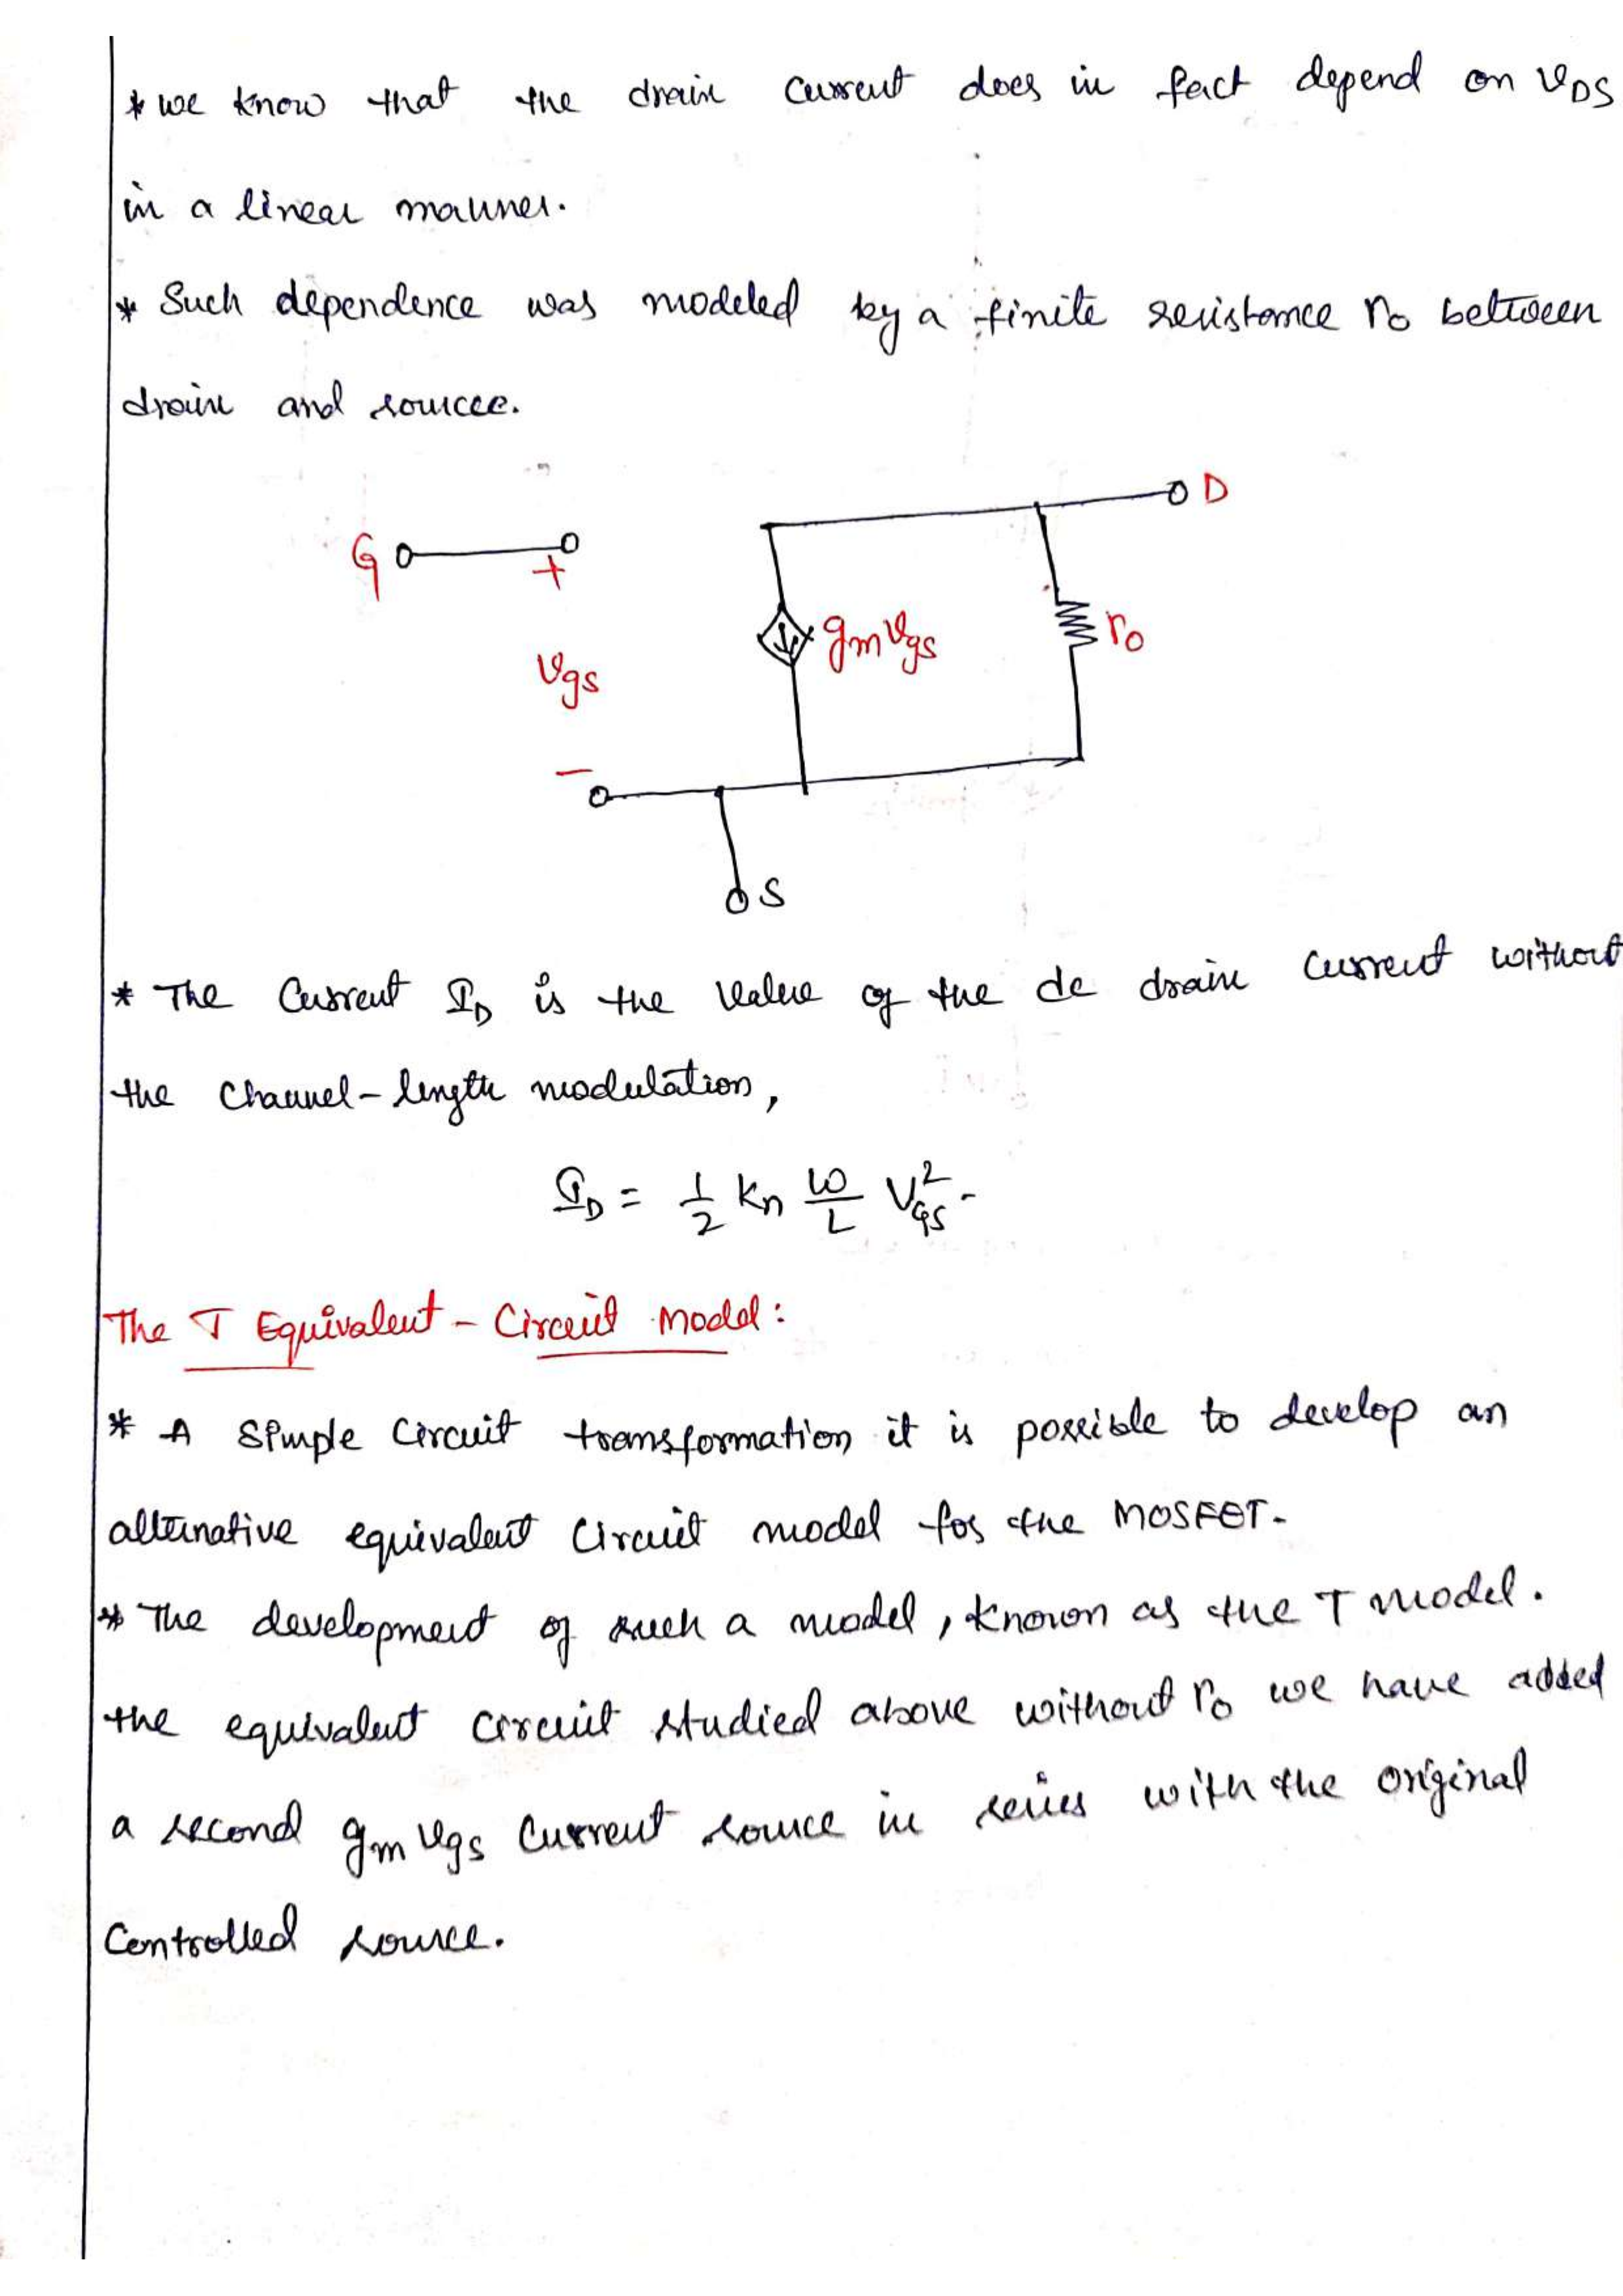 * we know that the drain current does in fact depend on VDS
in a linear manner.
* Such dependence was modeled by a finite resistance ro between
drain and source.
G
D
+
gm vgs
ro
vgs
−
S
* The current ID is the value of the dc drain current without
the channel-length modulation,
ID = 1/2 kn W/L VGS² -
The T Equivalent - Circuit Model:
* A simple circuit transformation it is possible to develop an
alternative equivalent circuit model for the MOSFET.
* The development of such a model, known as the T model.
the equivalent circuit studied above without ro we have added
a second gm vgs current source in series with the original
controlled source.